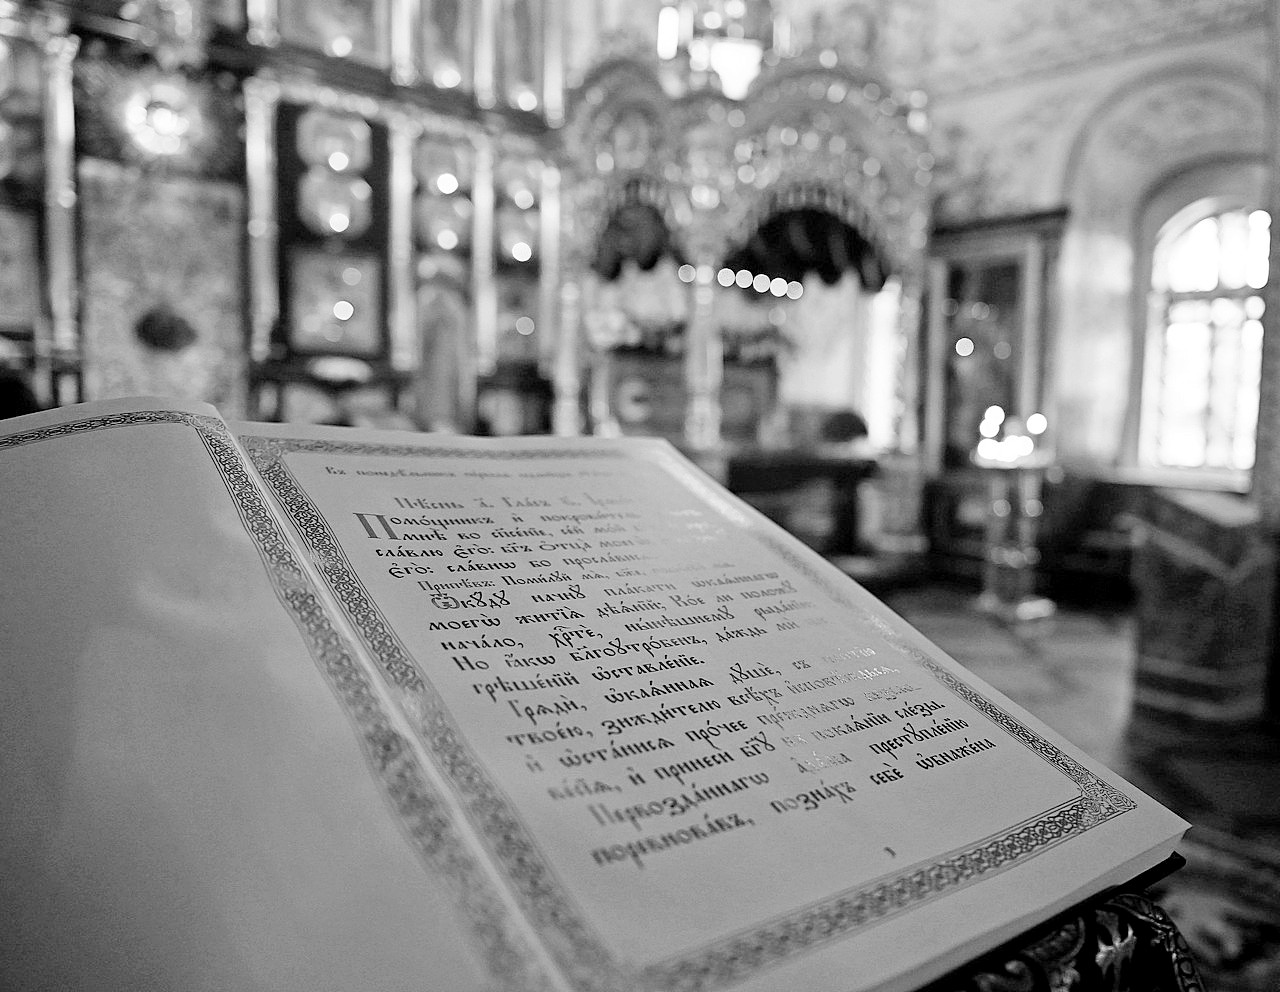 Въ понедѣльникъ
Пѣ́снь а҃. Гла́съ ѕ҃. І҆рмо́съ
Помо́щникъ и҆ покрови́тель
мнѣ̀ во сп҃се́нїе, се́й мо́й
сла́влю є҆го̀: бг҃ъ ѻ҆тца̀ моегѡ̀
є҆го̀: сла́внѡ бо просла́вися.
Припѣ́въ: Поми́лꙋй мѧ̀, бж҃е,
Ѿкꙋ́дꙋ начнꙋ̀ пла́кати ѡ҆каѧ́ннагѡ
моегѡ̀ житїѧ̀ дѣѧ́нїй; Ко́е ли положꙋ̀
нача́ло, хрⷭ҇тѐ, ны́нѣшнемꙋ рыда́нїю
Но ꙗ҆́кѡ бл҃гоꙋтро́бенъ, да́ждь мѝ
грѣше́нїй ѡ҆ставле́нїе.
Грѧдѝ, ѡ҆каѧ́ннаѧ дꙋшѐ, съ
твое́ю, зижди́телю всѣ́хъ и҆сповѣ́ждьсѧ,
и҆ ѡ҆ста́нисѧ про́чее пре́ждѧгѡ
и҆ принесѝ бг҃ꙋ въ покаѧ́нїи сле́зы.
Первозда́ннагѡ а҆да́ма престꙋпле́нїю
поревнова́въ, позна́хъ себѐ ѡ҆бнаже́на